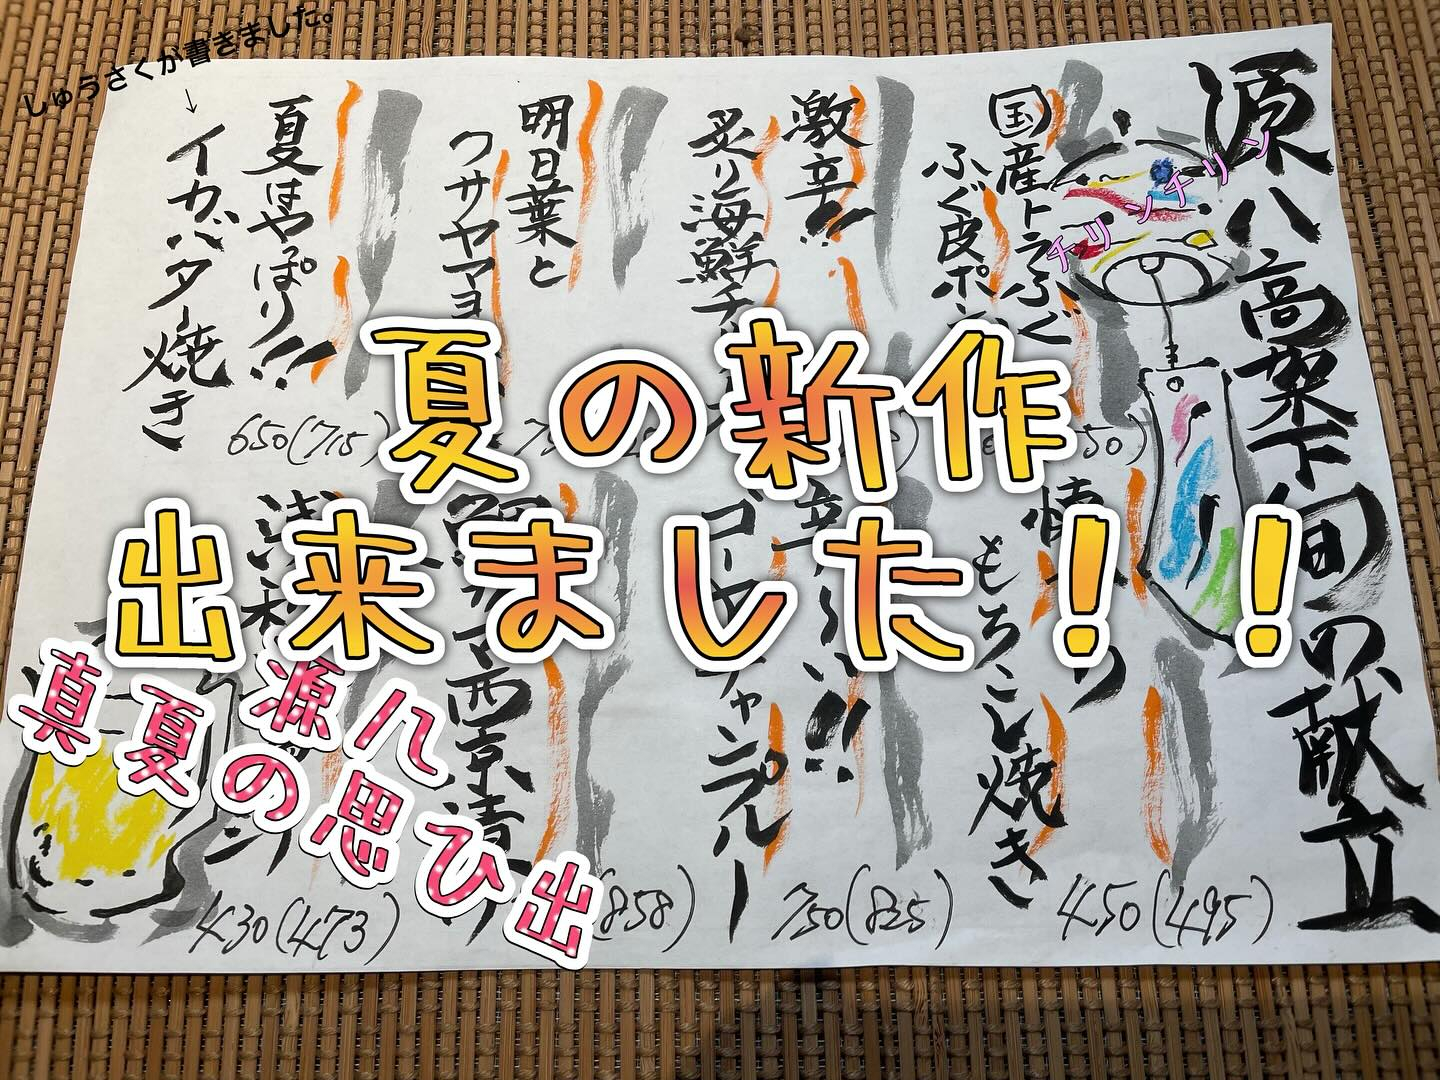 しゅうさくが書きました。
↓
チリンチリン
夏の新作
出来ました！！
源八
真夏の思ひ出
源八高架下旬の献立
国産トラふぐ
ふぐ皮ポン
50)
激辛!!
炙り海鮮チ
明日葉と
クサヤマヨ
夏はやっぱり!!
イカバター焼き
650(715)
もろこし焼き
450(495)
ゴーヤチャンプルー
750(825)
西京漬
858)
430(473)